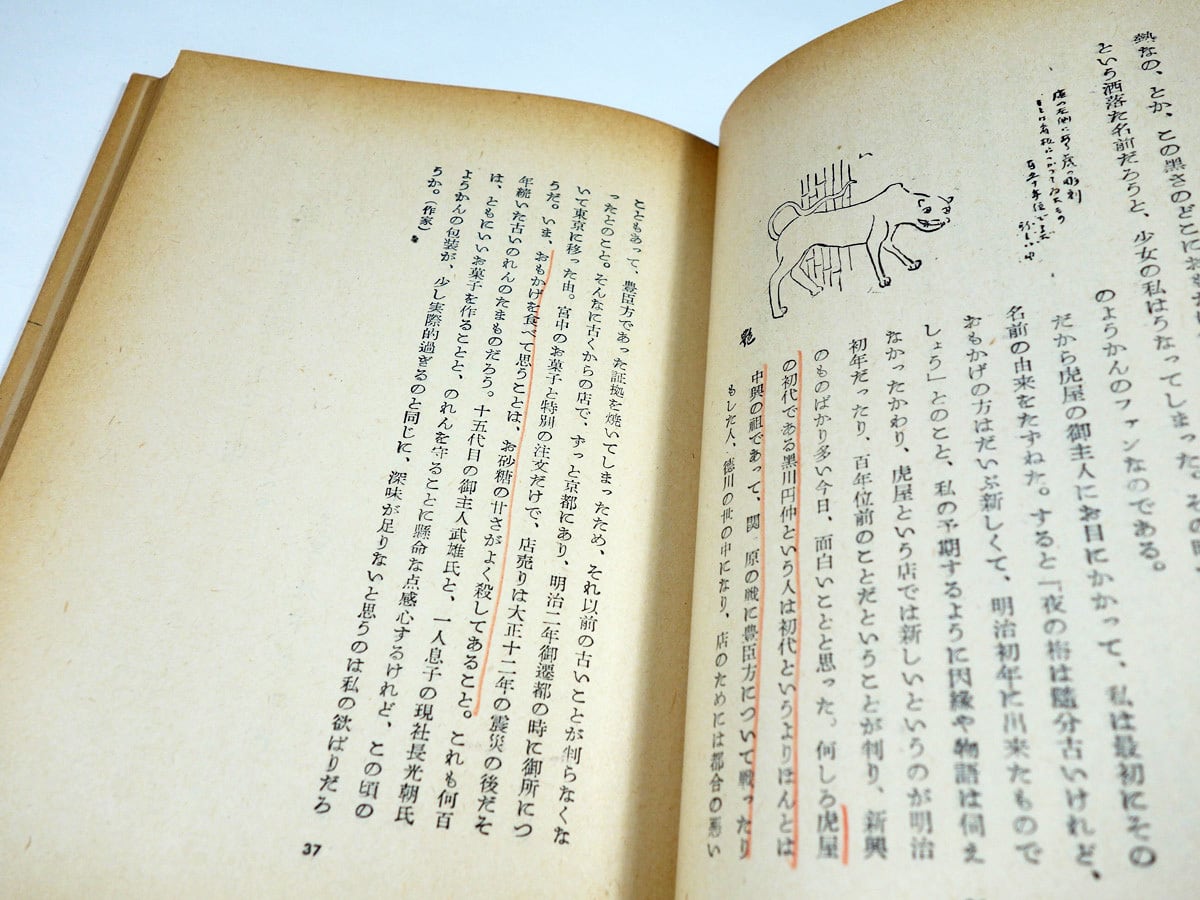 熱なの、とか、この黒さのどこにお
という洒落た名前だろうと、少女の私はうなってしまった。その時、
のようかんのファンなのである。
だから虎屋の御主人にお目にかかって、私は最初にその
名前の由来をたずねた。すると「夜の梅は随分古いけれど、
おもかげの方はだいぶ新しくて、明治初年に出来たもので
しょう」とのこと、私の予期するように因縁や物語は伺え
なかったかわり、虎屋という店では新しいというのが明治
初年だったり、百年位前のことだということが判り、新興
のものばかり多い今日、面白いことと思った。何しろ虎屋
の初代である黒川円仲という人は初代というよりほんとは
中興の祖であって、関ヶ原の戦に豊臣方について戦ったり
もした人、徳川の世の中になり、店のためには都合の悪い
こともあって、豊臣方であった証拠を焼いてしまったため、それ以前の古いことが判らなくな
ったとのこと。そんなに古くからの店で、ずっと京都にあり、明治二年御遷都の時に御所につ
いて東京に移った由。宮中のお菓子と特別の注文だけで、店売りは大正十二年の震災の後だそ
うだ。いま、おもかげを食べて思うことは、お砂糖の甘さがよく殺してあること。これも何百
年続いた古いのれんのたまものだろう。十五代目の御主人武雄氏と、一人息子の現社長光朝氏
は、ともにいいお菓子を作ることと、のれんを守ることに懸命な点感心するけれど、この頃の
ようかんの包装が、少し実際的過ぎるのと同じに、深味が足りないと思うのは私の欲ばりだろ
うか。（作家）
37